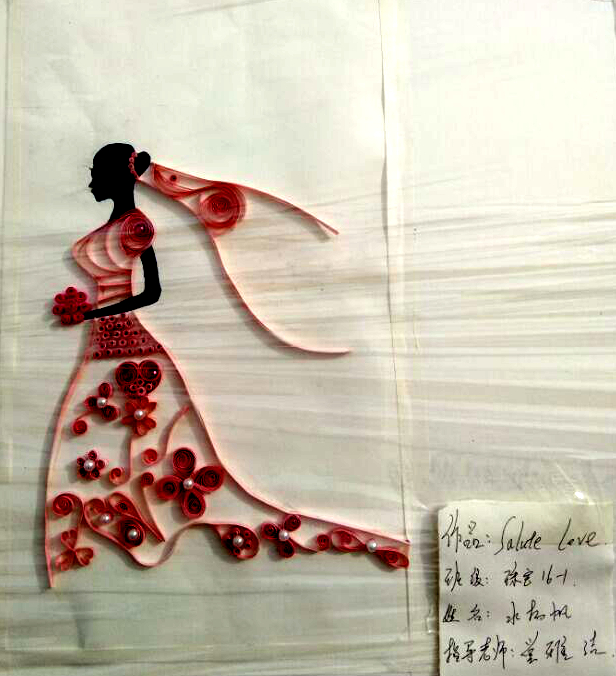 作品: Salute Love.
班级: 珠宝16-1.
姓名: 水杨帆
指导老师: 雅洁.